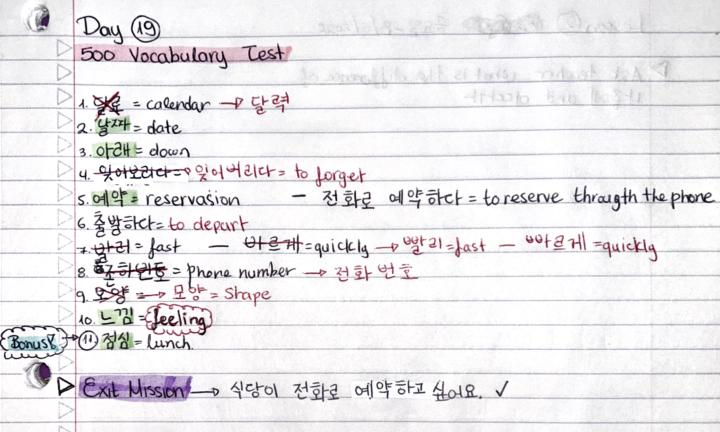 Day 19
500 Vocabulary Test
1. 달료 = calendar → 달력
2. 날짜 = date
3. 아래 = down
4. 잊어보리다 → 잊어버리다 = to forget
5. 예약 = reservasion — 전화로 예약하다 = to reserve thraugth the phone
6. 출발하다 = to depart
7. 발리 = fast — 바르게 = quickly → 빨리 = fast — 빠르게 = quickly
8. = phone number → 전화 번호
9. → 모양 = Shape
10. 느낌 = feeling
Bonus! → 11. 점심 = lunch.
▷ Exit Mission → 식당이 전화로 예약하고 싶어요. ✓